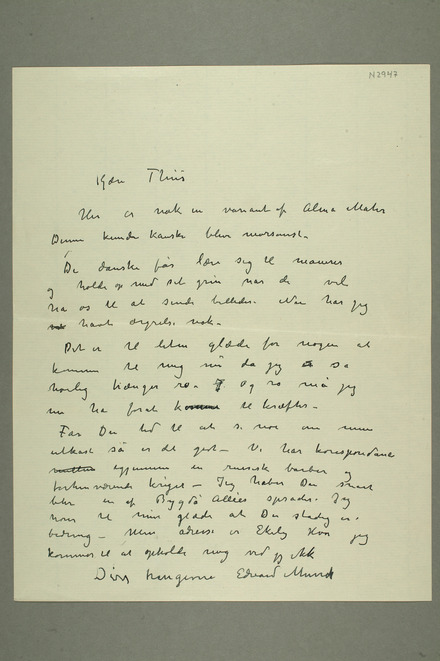 N2947
Kjære Thiis
Her er nok en variant af Alma Mater
Denne kunde kanske blive morsomst.
De danske får lære sig til manerer
og holde op med sit grin når de vil
ha os til at sende billeder. Nu har jeg
havt ærgrelse nok.
Det er til liten glæde for nogen at
komme til mig nu da jeg så
hårlig trænger ro. Og ro må jeg
nu ha forat komme til kræfter.
Før Du tid til at si noe om mine
utkast så er det godt. Vi har korespondance
gjennem en russisk barber og
krigen. Jeg håber Du snart
blir en af Bygdø Allées spradere. Jeg
hører til min glæde at Du stadig er i
bedring. Min adresse er Ekely Hvor jeg
kommer til at opholde mig
Din hengivne Edvard Munch